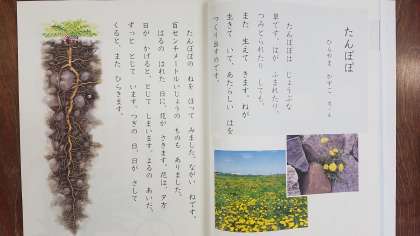 たんぽぽ
ひらやま かずこ ぶん・え
たんぽぽは じょうぶな
草です。はが ふまれたり、
つみとられたり しても、
また 生えて きます。ねが
生きて いて、あたらしい はを
つくり出すのです。
たんぽぽの ねを ほって みました。ながい ねです。
百センチメートルいじょうの ものも ありました。
はるの はれた 日に、花が さきます。花は、夕方
日が かげると、とじて しまいます。よるの あいだ、
ずっと とじて います。つぎの 日、日が さして
くると、また ひらきます。